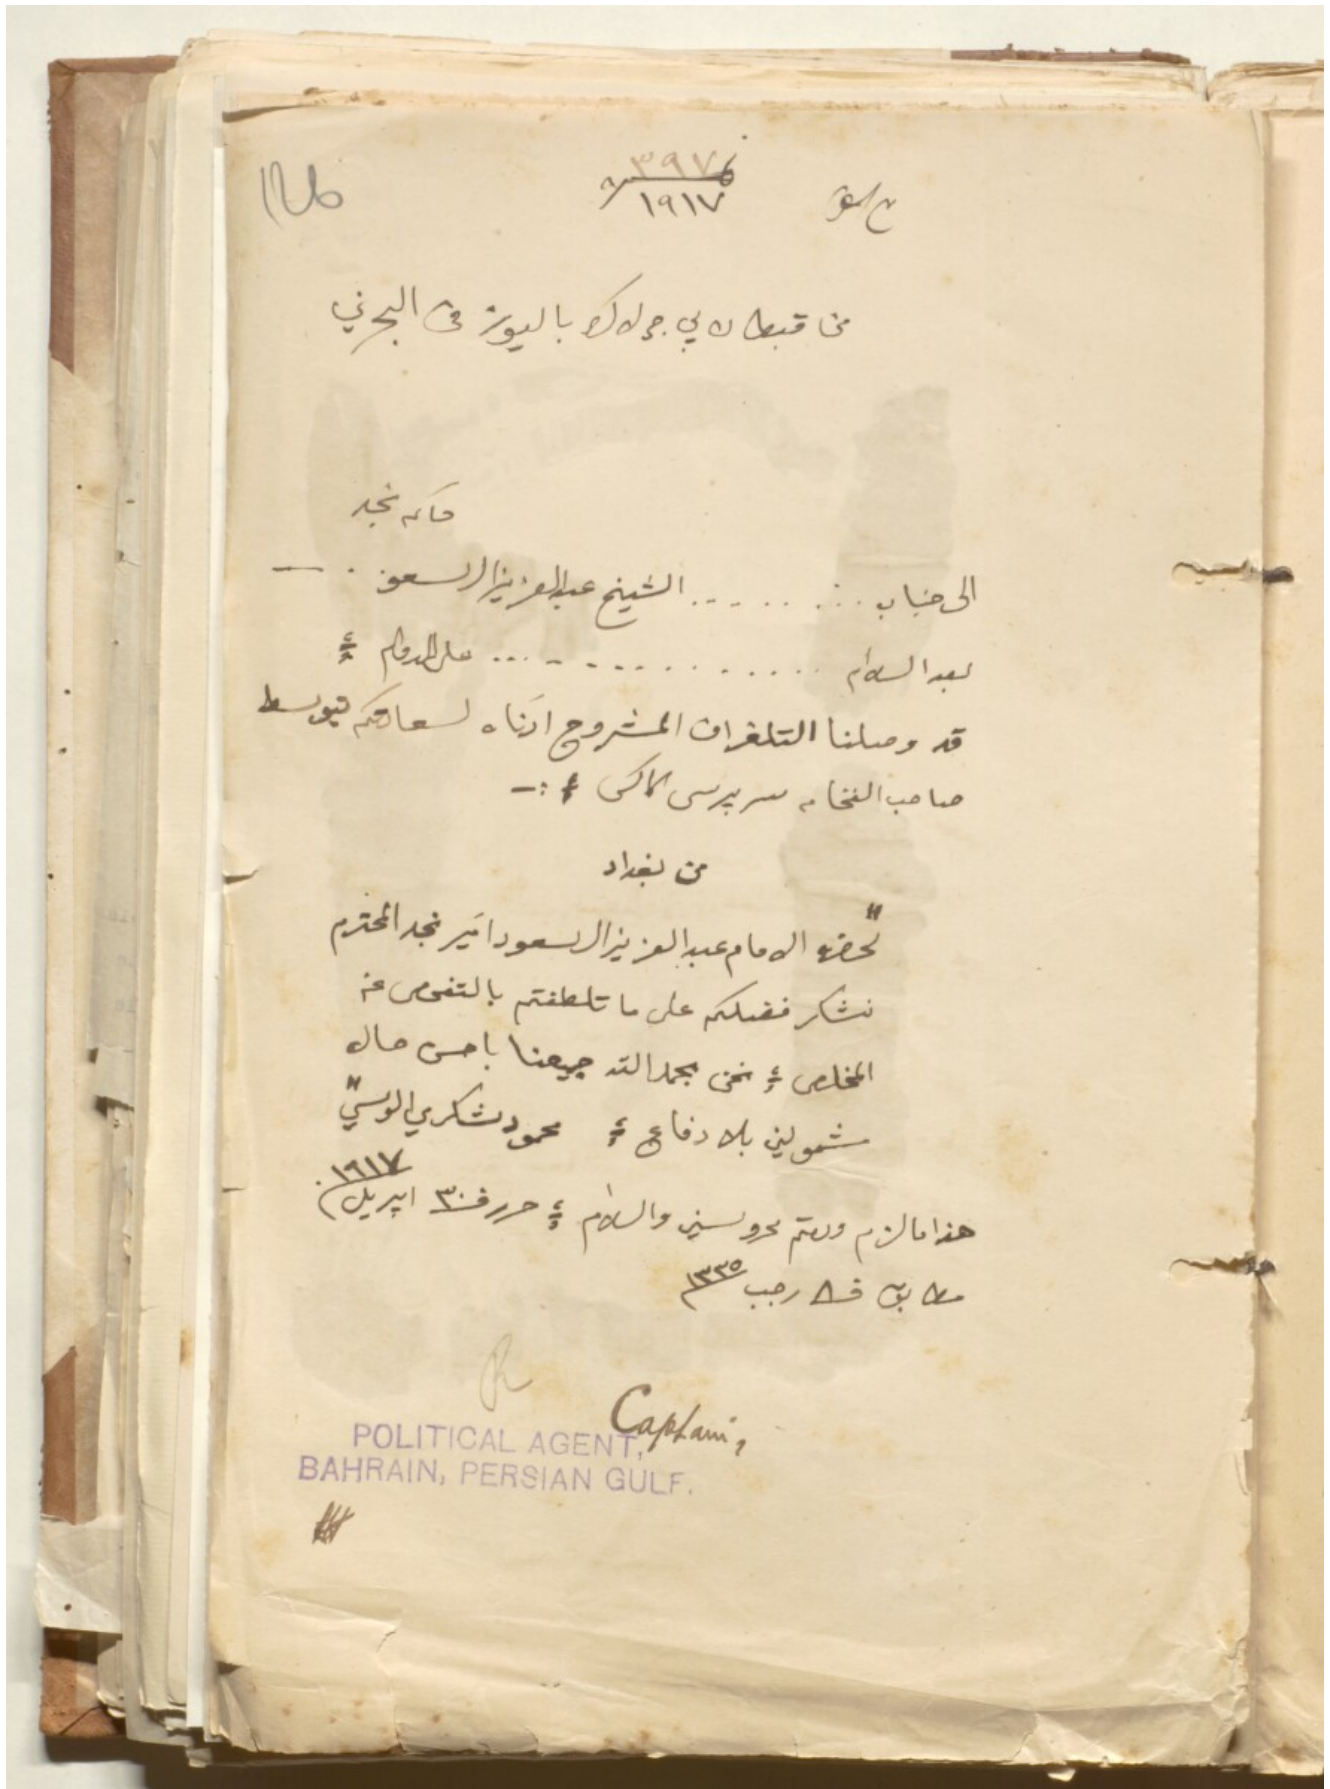 ٣٩٧
١٩١٧
من قبطان بي جي لاك باليوز في البحرين
حاكم نجد
الى جناب . . . . . . . . الشيخ عبدالعزيز ال سعود . —
بعد السلام . . . . . . . . . . . . . . على الدوام
قد وصلنا التلغراف المشروح ادناه لسعادتكم بتوسط
صاحب الفخامه سر پرسي كاكس :—
من بغداد
"لحضرة الامام عبدالعزيز ال سعود امير نجد المحترم
نشكر فضلكم على ما تلطفتم بالتفحص عن
المخلص نحن بحمد الله جميعنا باحسن حال
مشمولين بلا دفاع محمود شكري الوسي"
هذا ما لزم ودمتم محروسين والسلام حرر في ٣٠ اپريل ١٩١٧
مطابق رجب ١٣٣٥
Captain,
POLITICAL AGENT,
BAHRAIN, PERSIAN GULF.